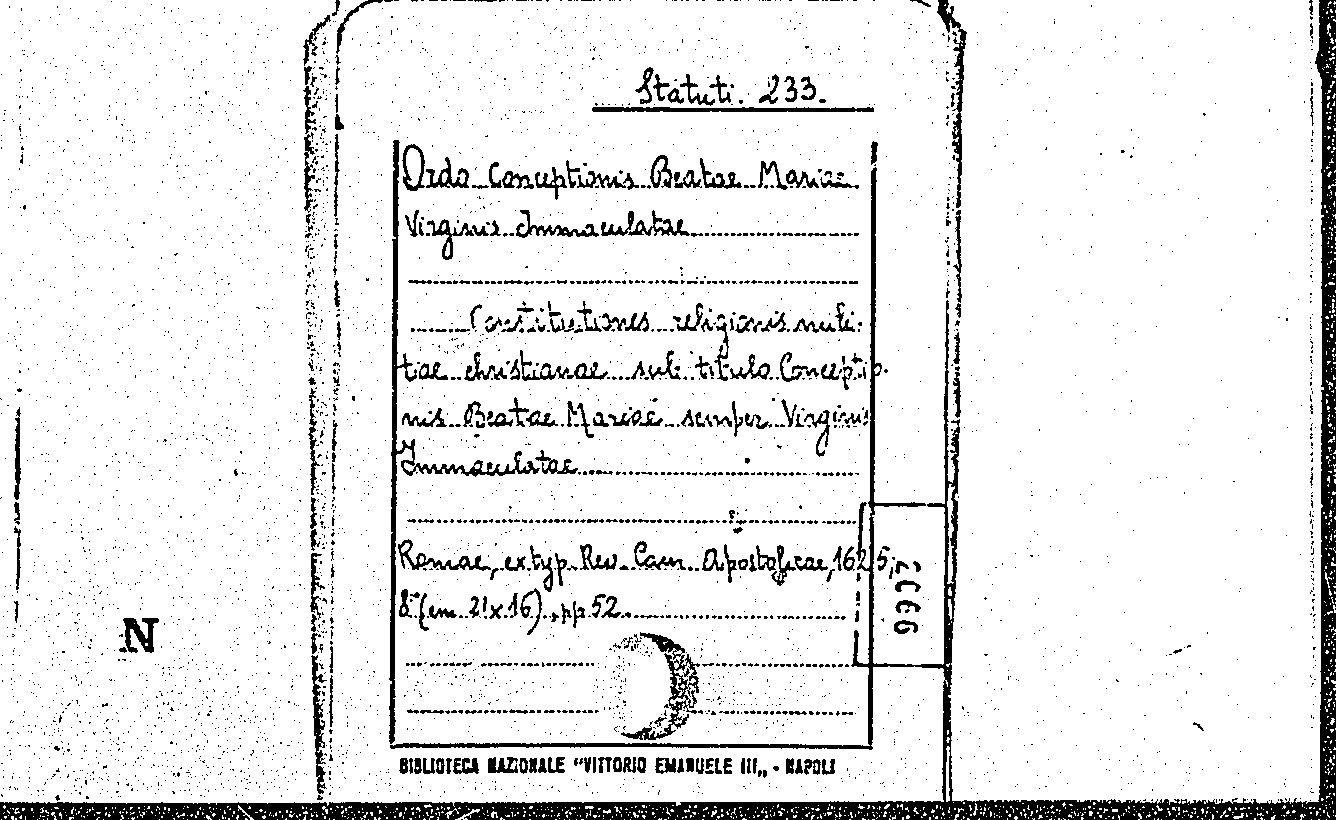 Statuti. 233.
Ordo Conceptionis Beatae Mariae
Virginis Immaculatae
Constitutiones religionis mili-
tiae christianae sub titulo Conceptio-
nis Beatae Mariae semper Virginis
Immaculatae
Romae, ex typ. Rev. Cam. Apostolicae, 1625;
8° (cm. 21x16), pp. 52.
N
BIBLIOTECA NAZIONALE "VITTORIO EMANUELE III„ - NAPOLI